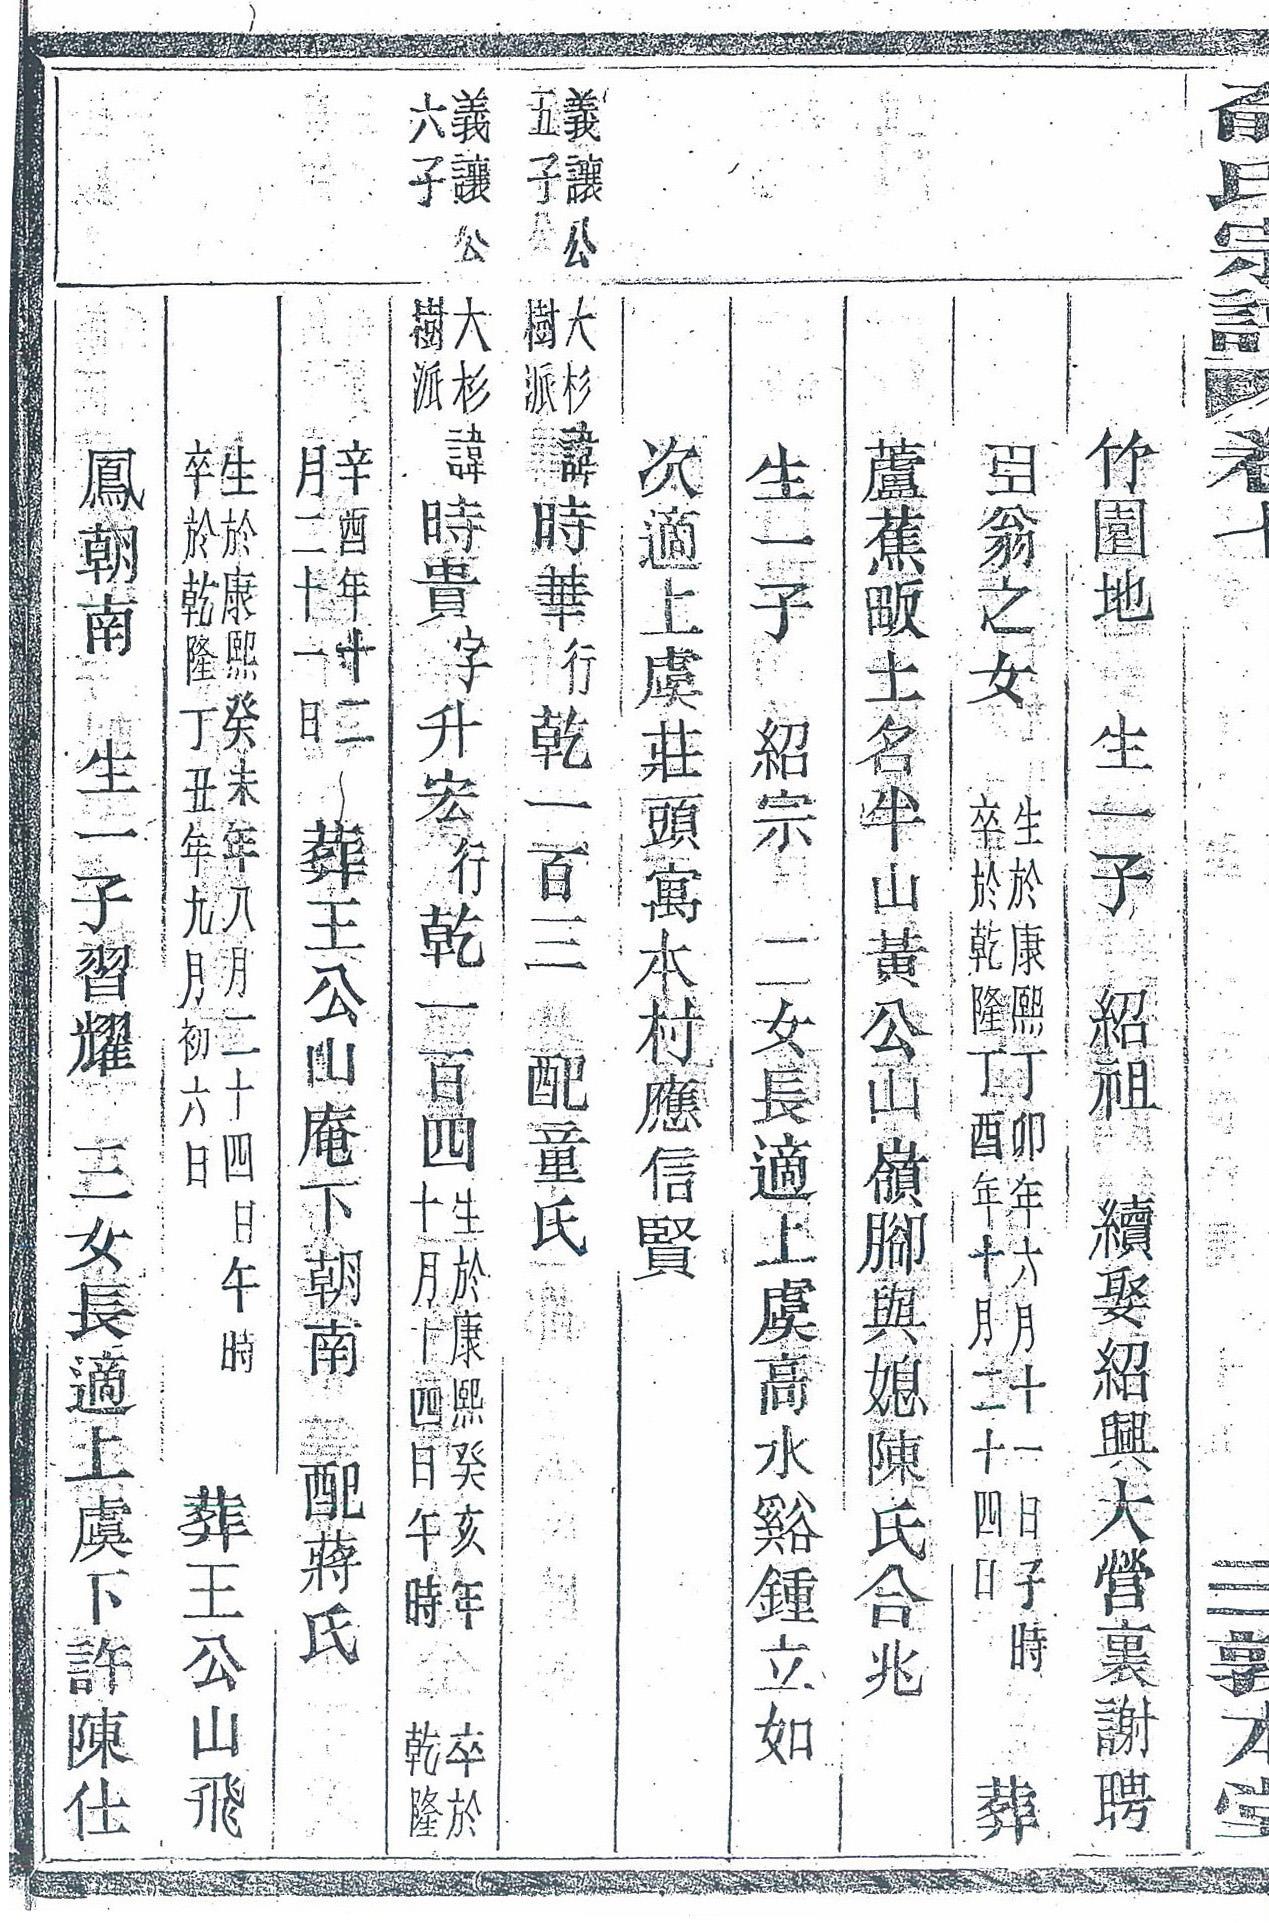 俞氏宗譜 卷十 三 敦本堂
竹園地 生一子 紹祖 續娶紹興大營裏謝聘
臣翁之女 生於康熙丁卯年六月十一日子時 卒於乾隆丁酉年十月二十四日 葬
蘆蕉畈土名牛山黃公山嶺腳與媳陳氏合兆
生一子 紹宗 二女長適上虞高水谿鍾立如
次適上虞莊頭寓本村應信賢
義讓公五子 大杉樹派 諱時華行乾一百三 配童氏
義讓公六子 大杉樹派 諱時貴字升宏行乾一百四 生於康熙癸亥年十月十四日午時 卒於乾隆
辛酉年十二月二十一日 葬王公山庵下朝南 配蔣氏
生於康熙癸未年八月二十四日午時 卒於乾隆丁丑年九月初六日 葬王公山飛
鳳朝南 生一子習耀 三女長適上虞下許陳仕